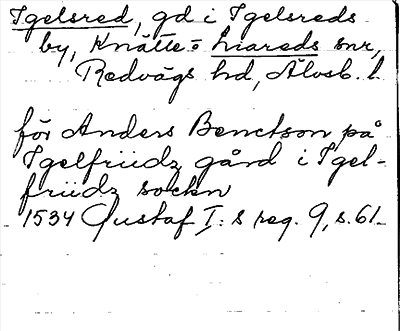 Igelsred, gd i Igelsreds
by, Knätte = Liareds snr,
Redvägs hd, Älvsb. l
för Anders Benctson på
Igelfriidz gård i Igel-
friidz sockn
1534 Gustaf I: s reg. 9, s. 61